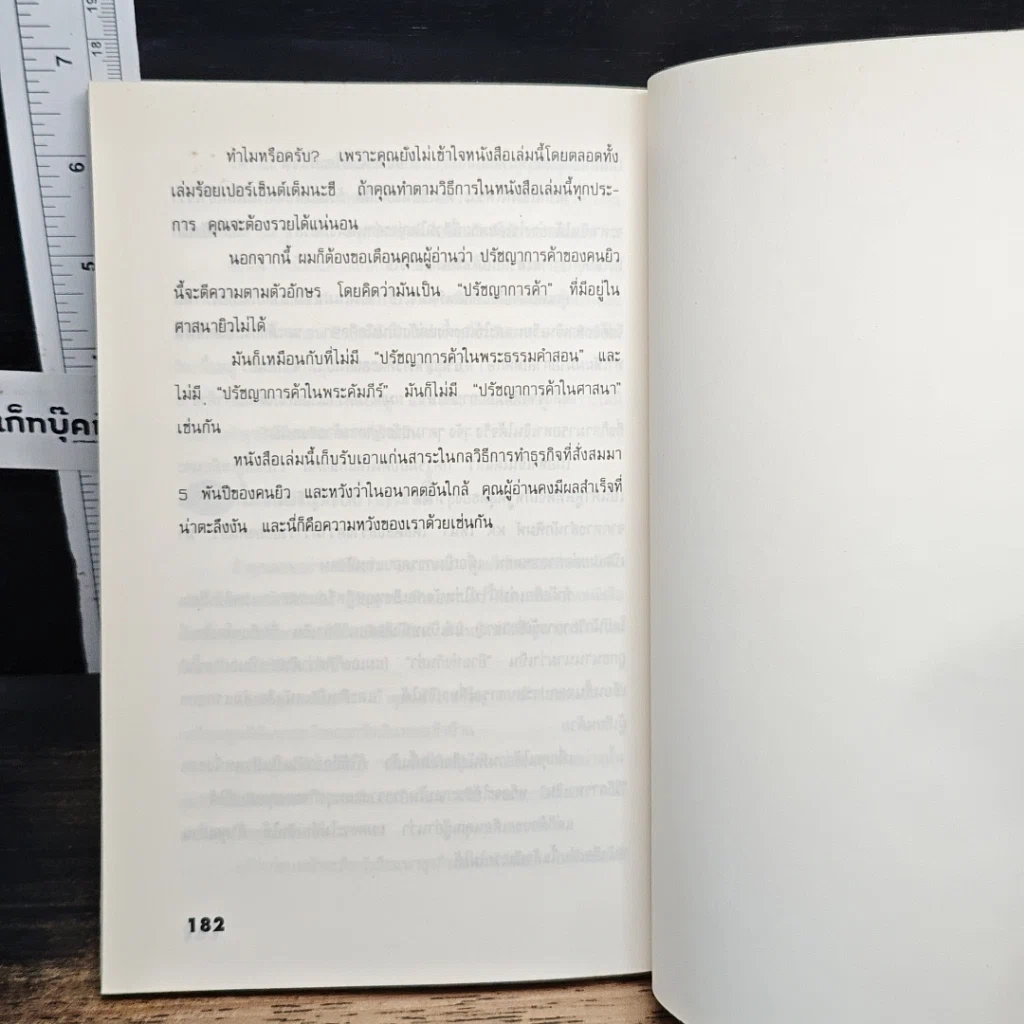 ทำไมหรือครับ? เพราะคุณยังไม่เข้าใจหนังสือเล่มนี้โดยตลอดทั้ง
เล่มร้อยเปอร์เซ็นต์เต็มนะซี ถ้าคุณทำตามวิธีการในหนังสือเล่มนี้ทุกประ-
การ คุณจะต้องรวยได้แน่นอน
นอกจากนี้ ผมก็ต้องขอเตือนคุณผู้อ่านว่า ปรัชญาการค้าของคนยิว
นี้จะตีความตามตัวอักษร โดยคิดว่ามันเป็น “ปรัชญาการค้า” ที่มีอยู่ใน
ศาสนายิวไม่ได้
มันก็เหมือนกับที่ไม่มี “ปรัชญาการค้าในพระธรรมคำสอน” และ
ไม่มี “ปรัชญาการค้าในพระคัมภีร์” มันก็ไม่มี “ปรัชญาการค้าในศาสนา”
เช่นกัน
หนังสือเล่มนี้เก็บรับเอาแก่นสาระในกลวิธีการทำธุรกิจที่สั่งสมมา
5 พันปีของคนยิว และหวังว่าในอนาคตอันใกล้ คุณผู้อ่านคงมีผลสำเร็จที่
น่าตะลึงงัน และนี่ก็คือความหวังของเราด้วยเช่นกัน
182
7
6
5
19
18
เก็ทบุ๊ค